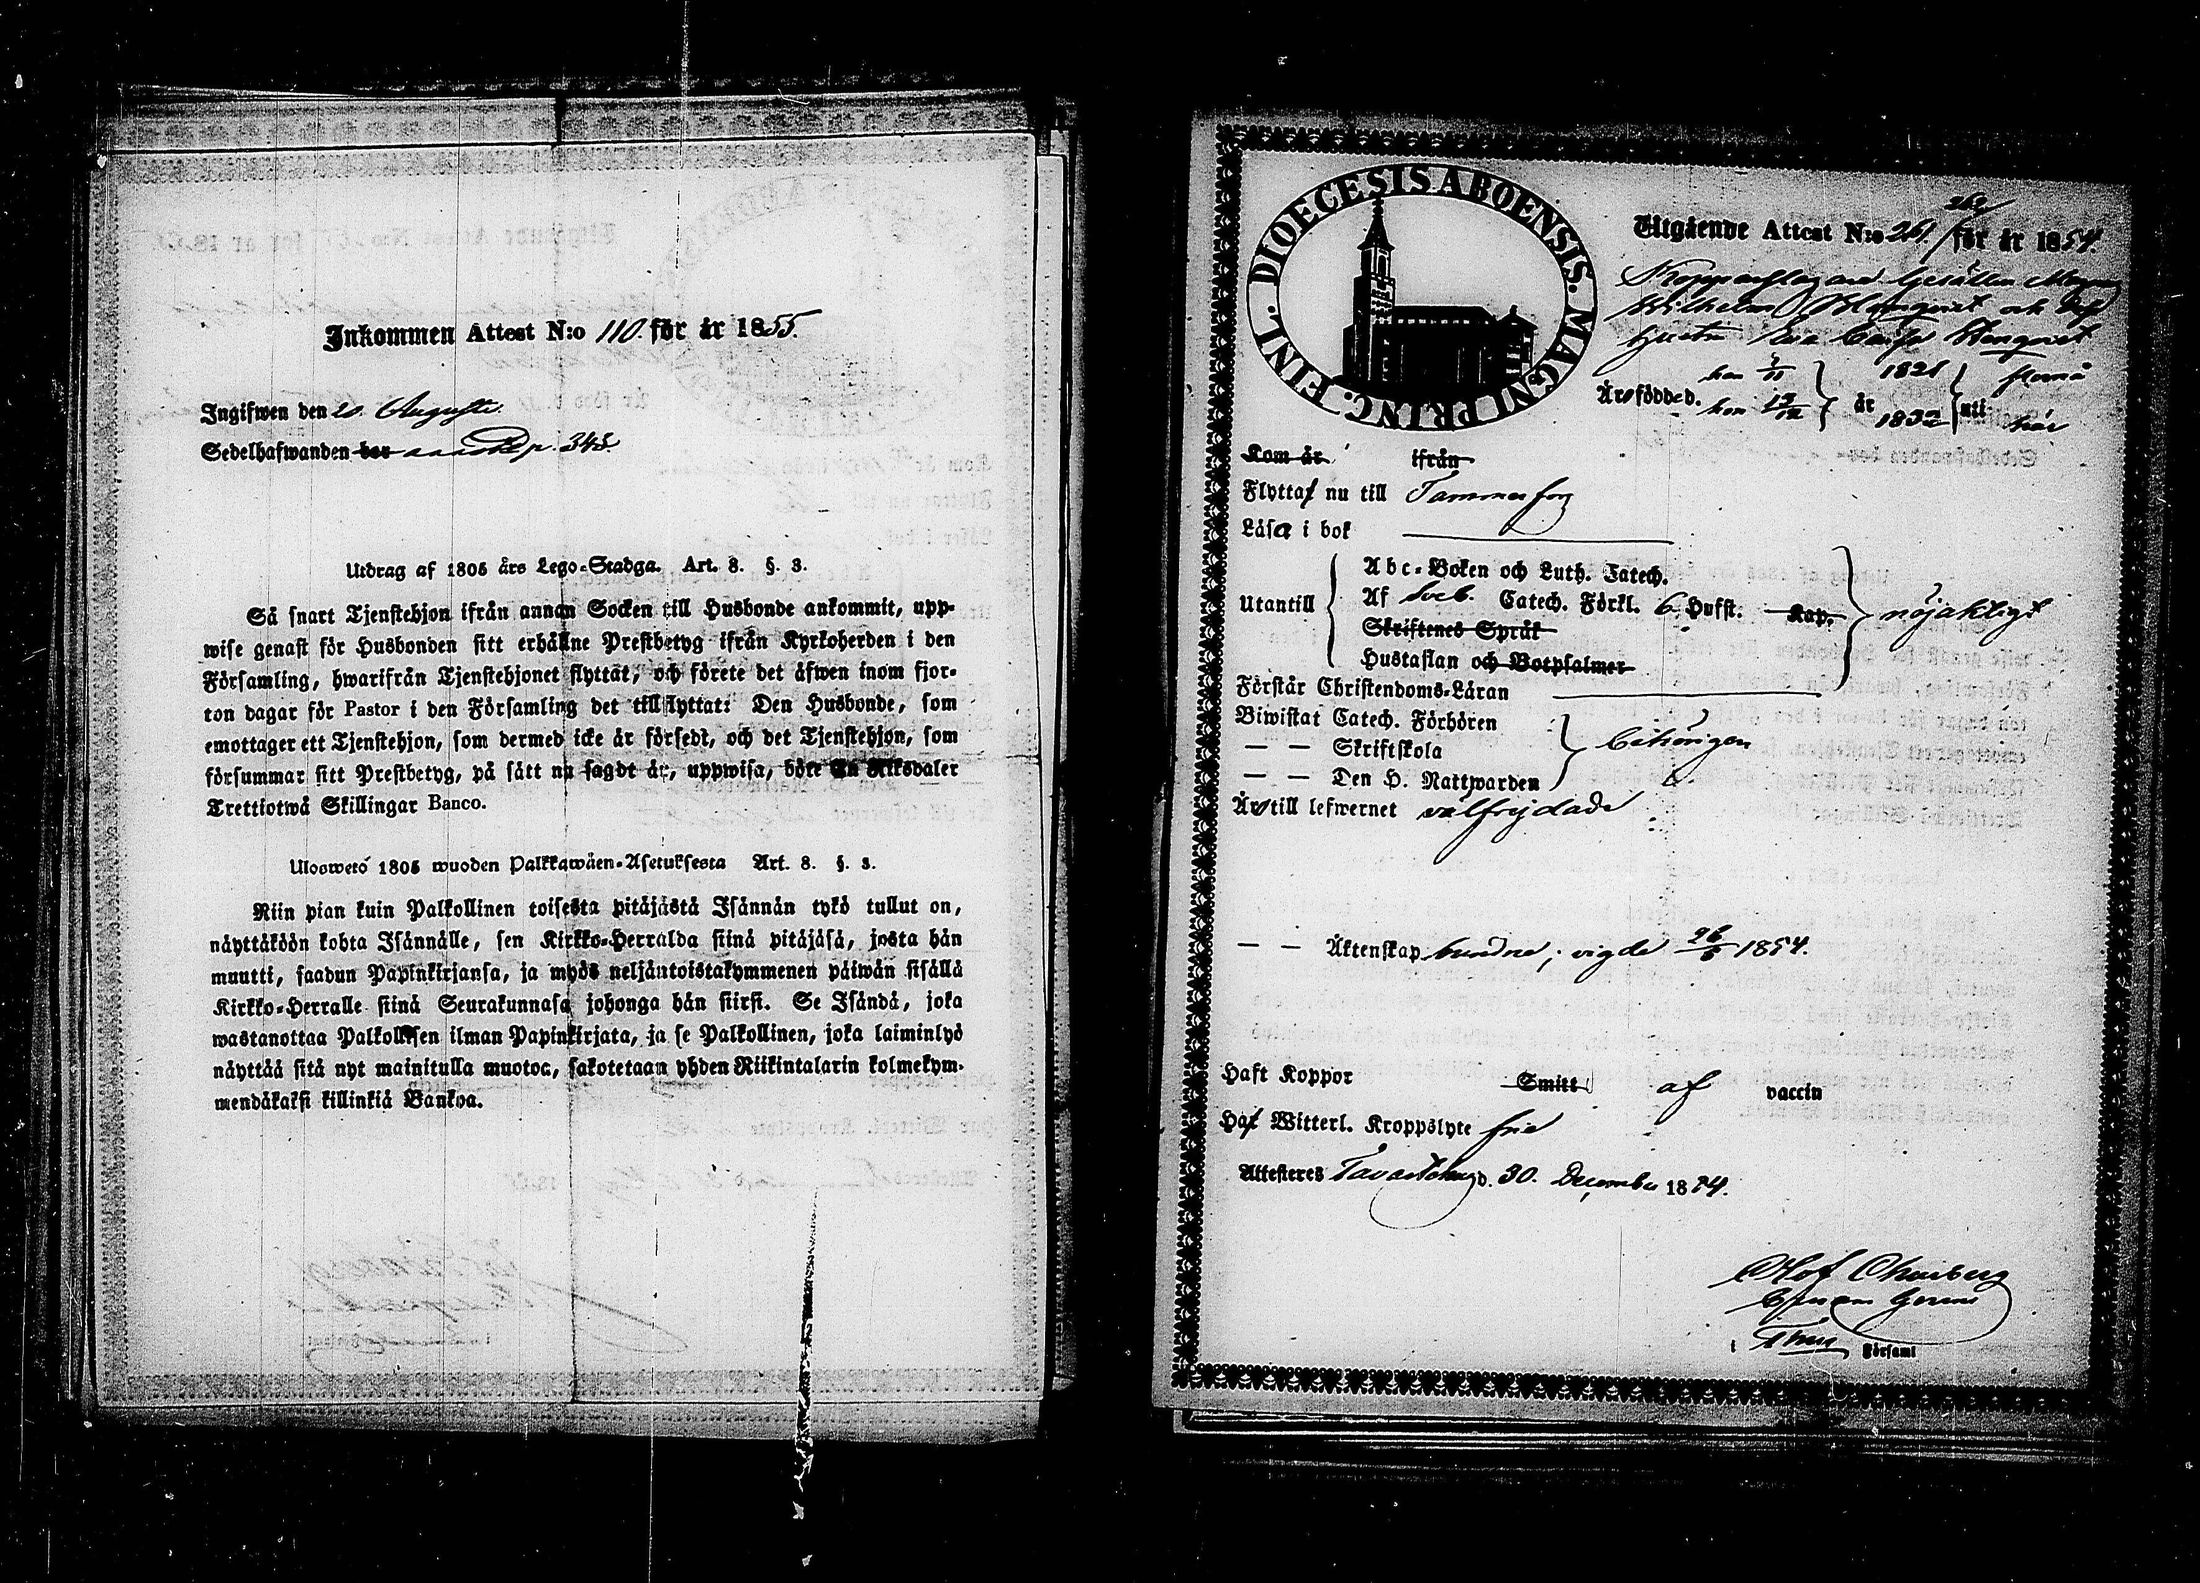 Inkommen Attest N:o 110. för år 1855.
Ingifwen den 20 Augusti.
Sedelhafwanden bor p. 345.
Utdrag af 1805 års Lego-Stadga. Art. 8. §. 3.
Så snart Tjenstehjon ifrån annan Socken till Husbonde ankommit, upp-
wise genast för Husbonden sitt erhållne Prestbetyg ifrån Kyrkoherden i den
Församling, hwarifrån Tjenstehjonet flyttat, och förete det äfwen inom fjor-
ton dagar för Pastor i den Församling det tillflyttat: Den Husbonde, som
emottager ett Tjenstehjon, som dermed icke är försedt, och det Tjenstehjon, som
försummar sitt Prestbetyg, på sätt nu sagdt är, uppwisa, böte En Riksdaler
Trettiotwå Skillingar Banco.
Uloswetö 1805 wuoden Palkkawäen-Asetuksesta Art. 8. §. 3.
Niin pian kuin Palkollinen toisesta pitäjästä Isännän tykö tullut on,
näyttäköön kohta Isännälle, sen Kirkko-Herralda siinä pitäjäsä, josta hän
muutti, saadun Papinkirjansa, ja myös neljäntoistakymmenen päiwän sisällä
Kirkko-Herralle siinä Seurakunnasa johonga hän siirsi. Se Isändä, joka
wastanottaa Palkollisen ilman Papinkirjata, ja se Palkollinen, joka laiminlyö
näyttää sitä nyt mainitulla muotoa, sakotetaan yhden Riikintalarin kolmekym-
mendäkaksi killinkiä Bankoa.
DIOECESIS ABOENSIS. MAGNI PRINC. FINL.
262
Utgående Attest N:o 261. / för år 1854.
Kopparslagare Gesällen Magnus
Wilhelm och des
hustru Eva
Äro födde d. han 7/11 hon 19/12 år 1828 1832 uti här
Kom år ifrån
Flytta nu till Tammerfors
Läsa i bok
Utantill Abc-Boken och Luth. Catech.
Af Sveb. Catech. Förkl. 6. Hufst. Kap. nöjaktigt
Skriftenes Språk
Hustaflan och Botpsalmer
Förstår Christendoms-Läran
Biwistat Catech. Förhören
— — Skriftskola behörigen
— — Den H. Nattwarden
Äro till lefwernet välfrejdade
— — Äktenskap bundne; vigde 26/5 1854.
Haft Koppor Smitt af vaccin
Haf Witterl. Kroppslyte frie
Attesteres Tavastehus d. 30. December 1854.
Olof
Församl